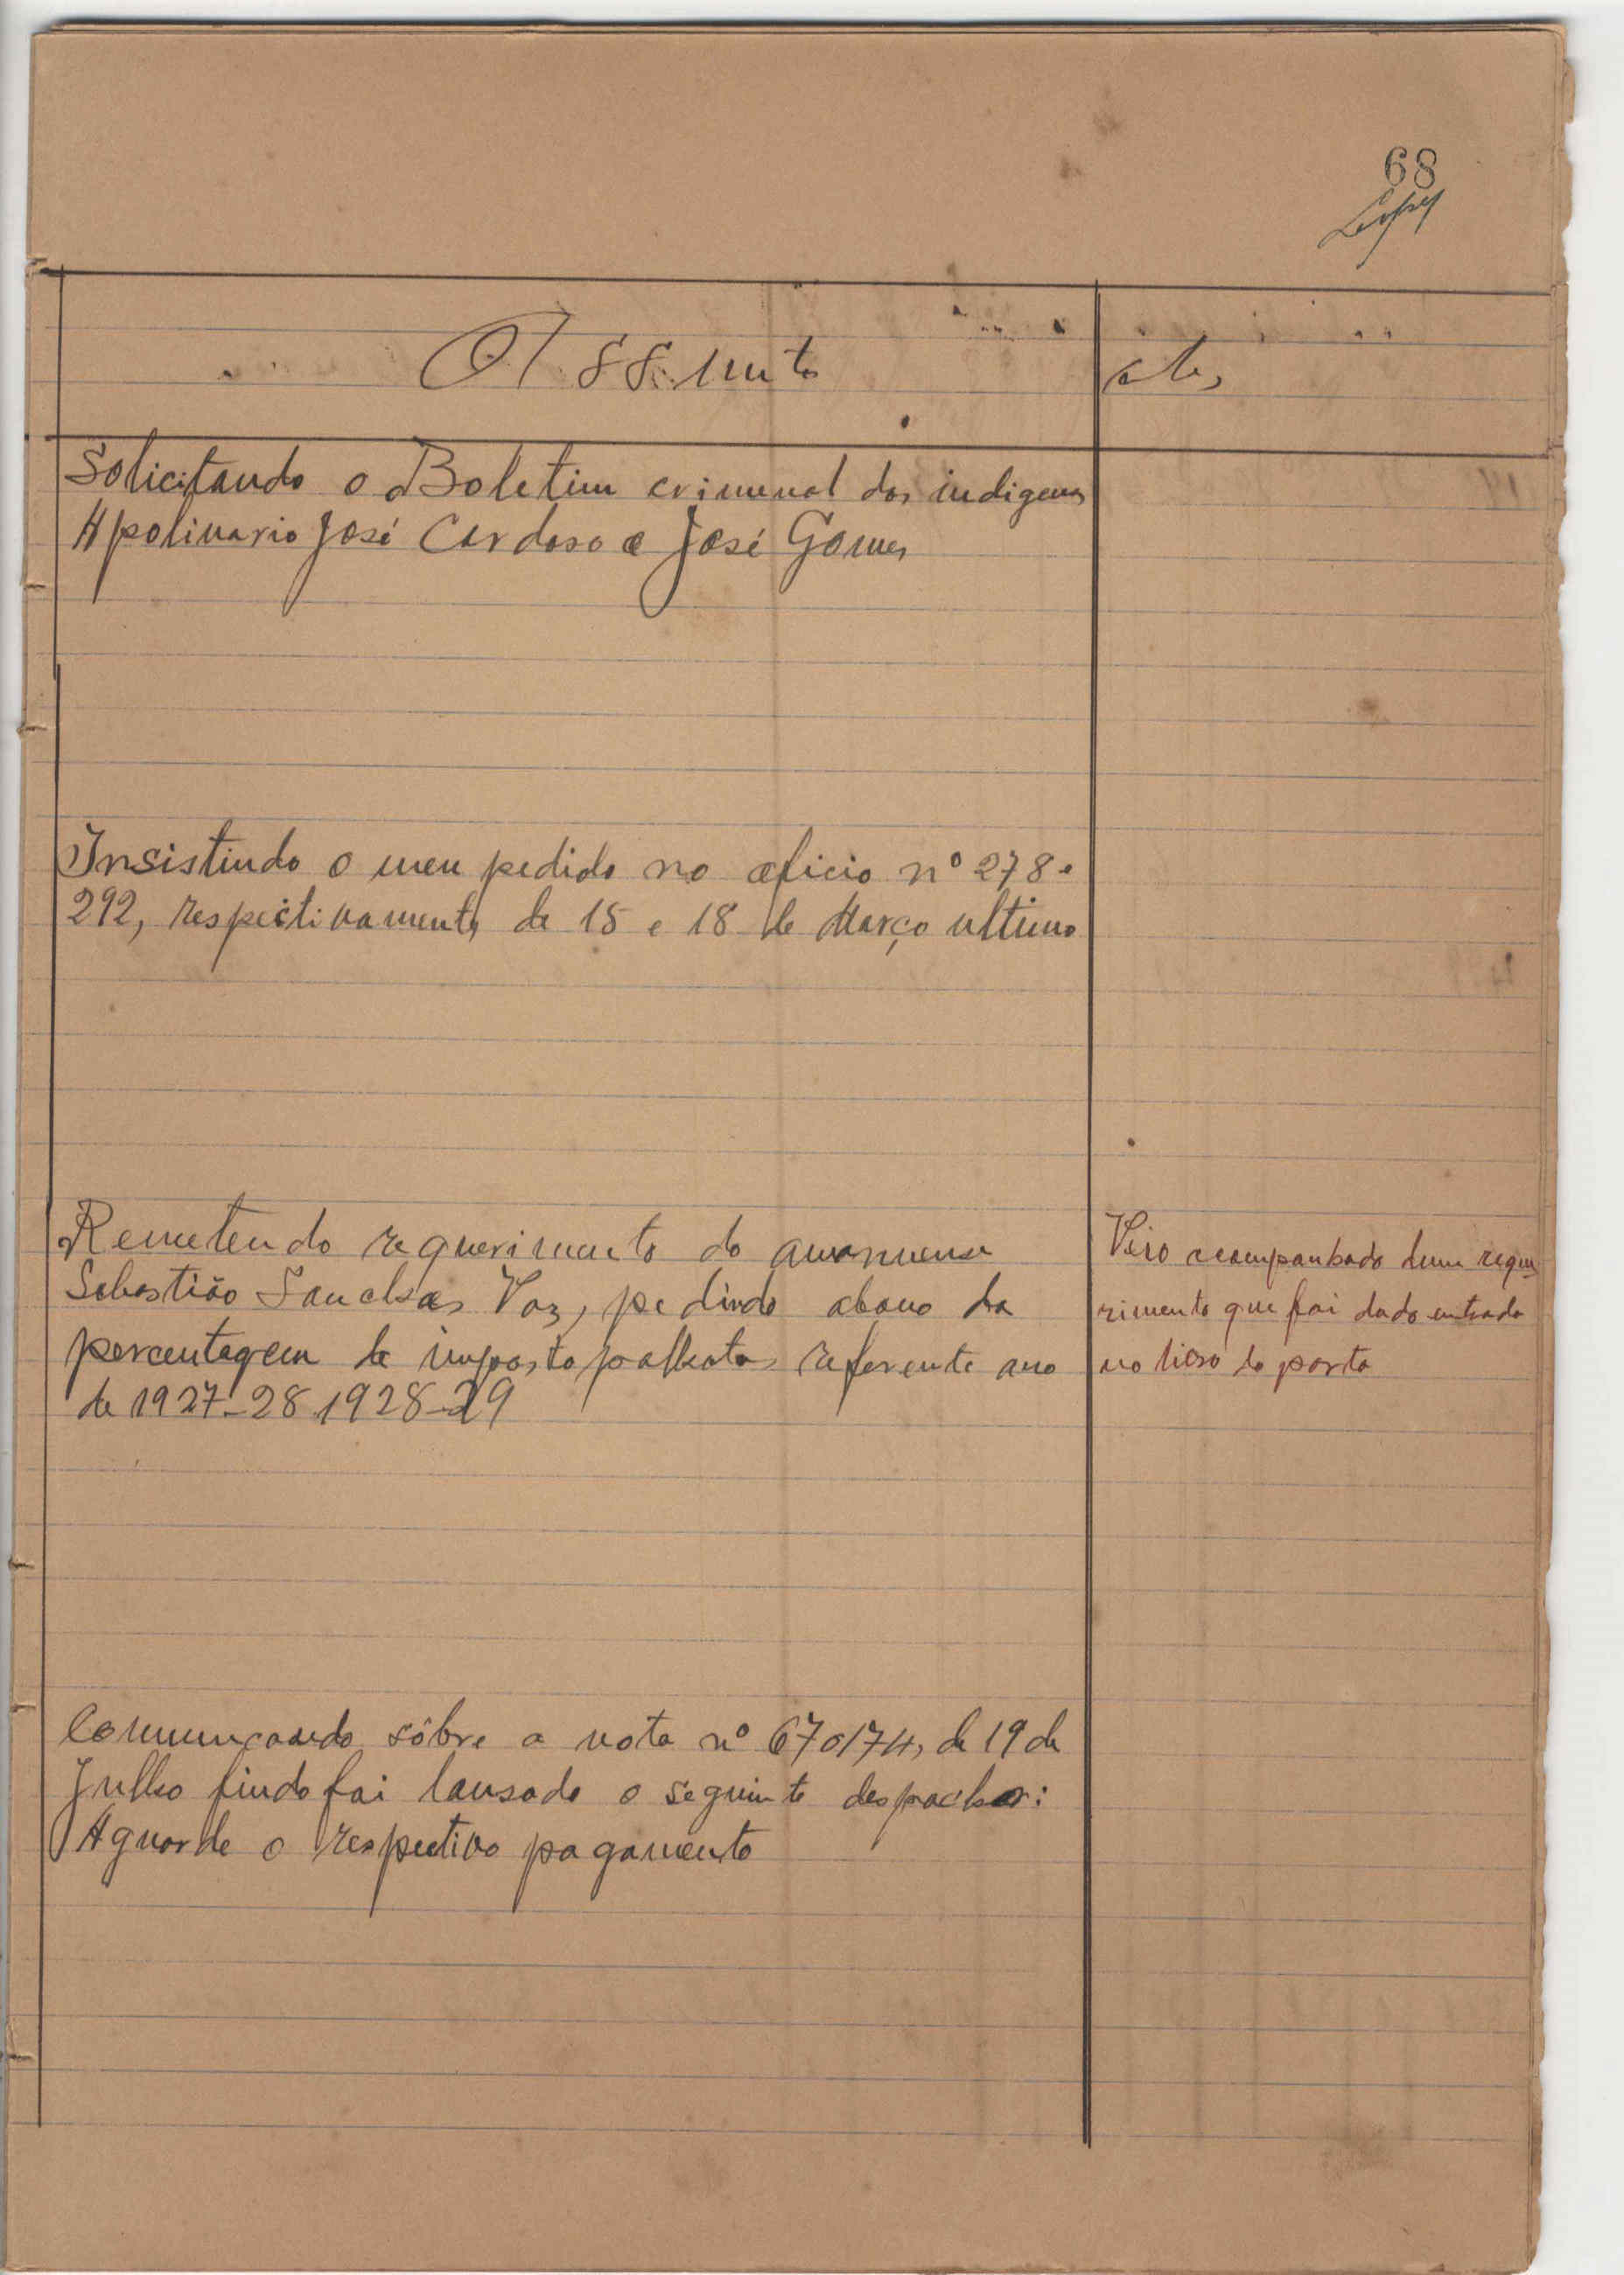 68
Assunto
Solicitando o Boletim criminal dos indigenas
Apolinario José Cardoso e José Gomes
Insistindo o meu pedido no oficio nº 278 e
292, respectivamente, de 15 e 18 de Março ultimo
Remetendo requerimento do amanuense
Sebastião Sanches Vaz, pedindo abono da
percentagem de imposto palhota referente ano
de 1927-28 1928-29
Veio acompanhado dum reque
rimento que foi dado entrada
no livro da porta
Comunicando sôbre a nota nº 670/74, de 19 de
Julho findo foi lansado o seguinte despacho:
Aguarde o respectivo pagamento